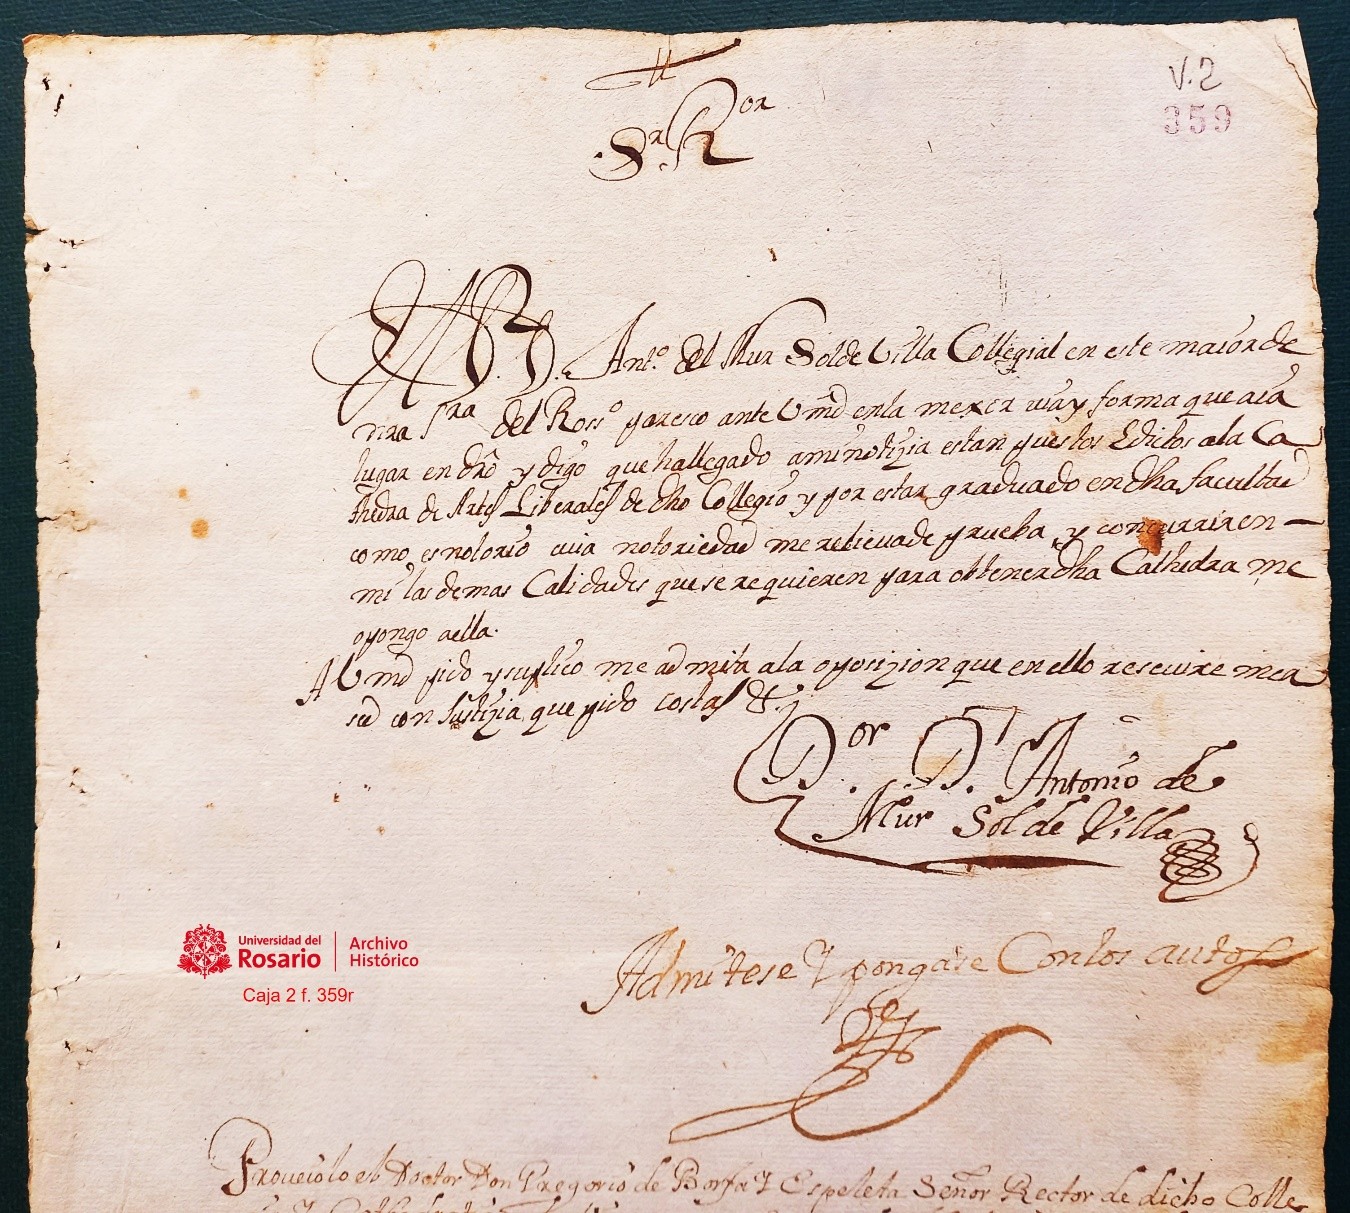 V.2
359
Sr. Ror
El Dor. D. Antº. del Mur Sol de Villa Collegial en este maior de
nra Sra del Rossº paresco ante Vmd en la mexor via y forma que aia
lugar en dro y digo que ha llegado a mi notizia estan puestos Edictos a la Ca
thedra de Artes Liberales de dho Collegio y por estar graduado en dha facultad
como es notorio cuia notoriedad me relieva de prueba y concurrir en
mi las demas Calidades que se requieren para obtener dha Cathedra me
opongo a ella.
A Vmd pido y suplico me admita a la oposizion que en ello resevire mer
sed con Justizia que pido costas &.
Dor. D. Antonio de
Mur Sol de Villa
Admitese Y pongase Con los autos
Universidad del
Rosario
Archivo
Histórico
Caja 2 f. 359r
Proveiolo el Doctor Don Gregorio de Borja Y Espeleta Señor Rector de dicho Colle